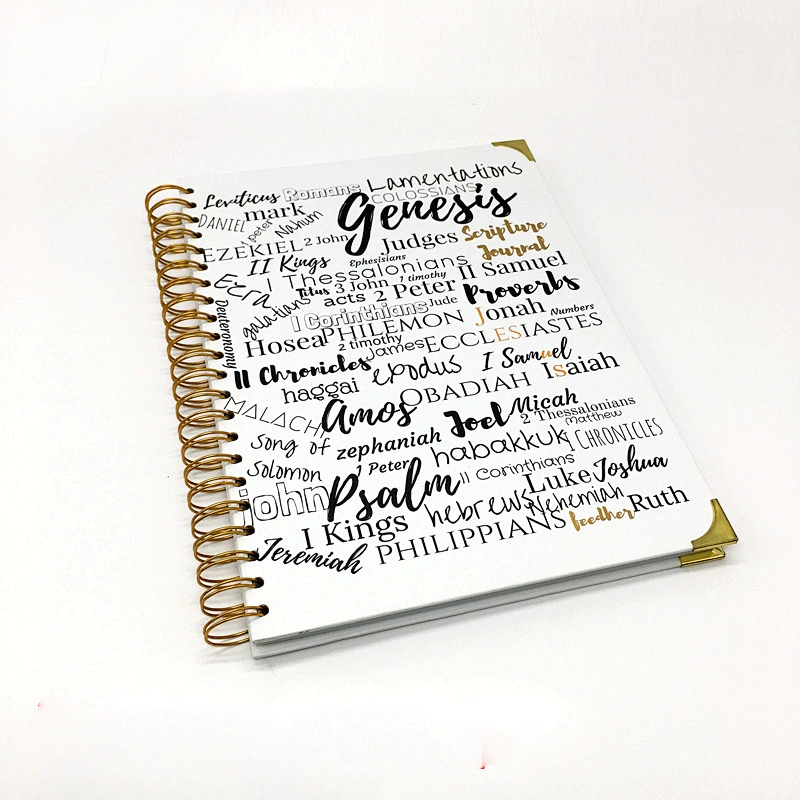 Leviticus Romans Lamentations
COLOSSIANS
DANIEL mark Genesis
1 peter Nahum
EZEKIEL 2 John Judges Scripture
Journal
II Kings Ephesisians
Ezra I Thessalonians II Samuel
Titus 3 John 1 timothy
galatians acts 2 Peter Proverbs
Deuteronomy
I Corinthians Jude Jonah Numbers
Hosea PHILEMON
2 timothy James ECCLESIASTES
II Chronicles exodus I Samuel
haggai OBADIAH Isaiah
MALACHI Amos Joel Micah
2 Thessalonians
Matthew
song of zephaniah habakkuk I CHRONICLES
solomon 1 Peter II Corinthians
john Psalm Luke Joshua
I Kings hebrews Nehemiah Ruth
Jeremiah PHILIPPIANS feedher